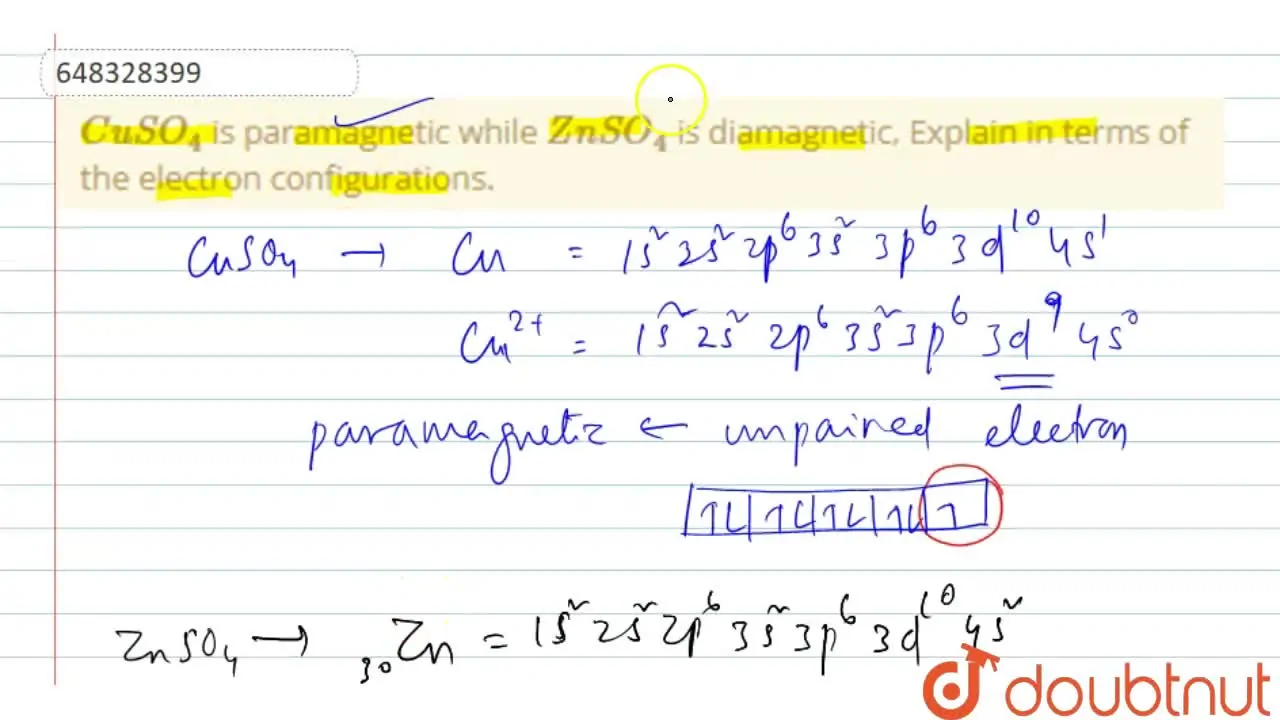 648328399
CuSO₄ is paramagnetic while ZnSO₄ is diamagnetic, Explain in terms of
the electron configurations.
CuSO₄ → Cu = 1s² 2s² 2p⁶ 3s² 3p⁶ 3d¹⁰ 4s¹
Cu²⁺ = 1s² 2s² 2p⁶ 3s² 3p⁶ 3d⁹ 4s⁰
paramagnetic ← unpaired electron
1L 1L 1L 1L 1
ZnSO₄ → ₃₀Zn = 1s² 2s² 2p⁶ 3s² 3p⁶ 3d¹⁰ 4s²
doubtnut